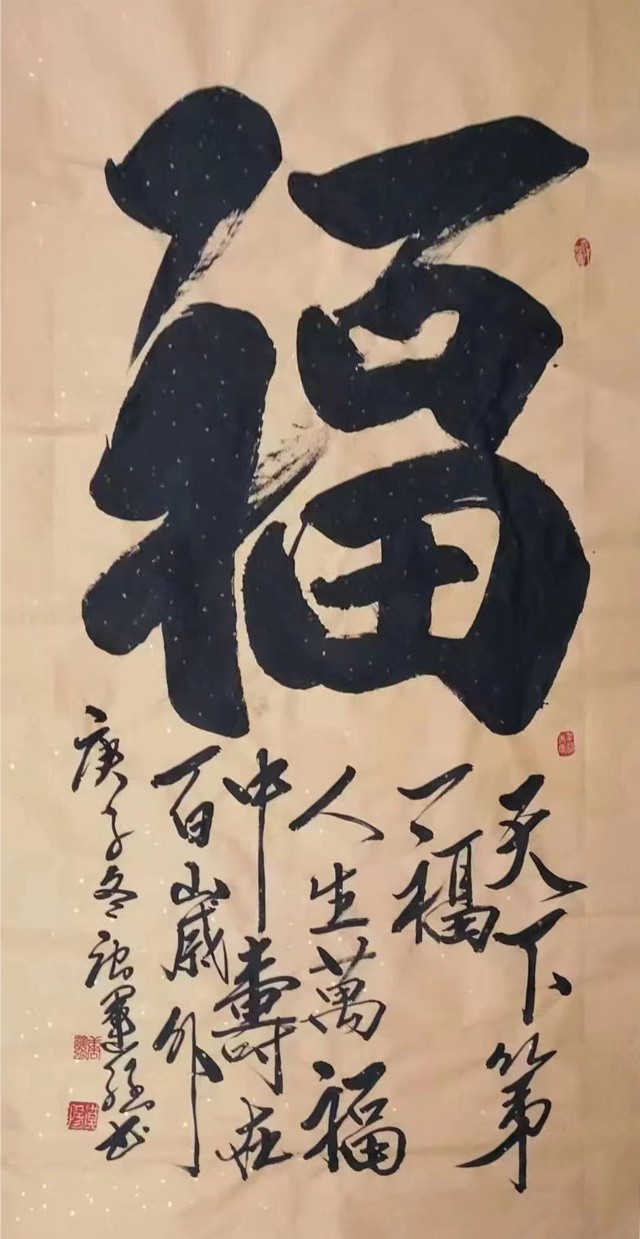 福
天下第
一福
人生萬福
中壽在
百歲外
庚子冬